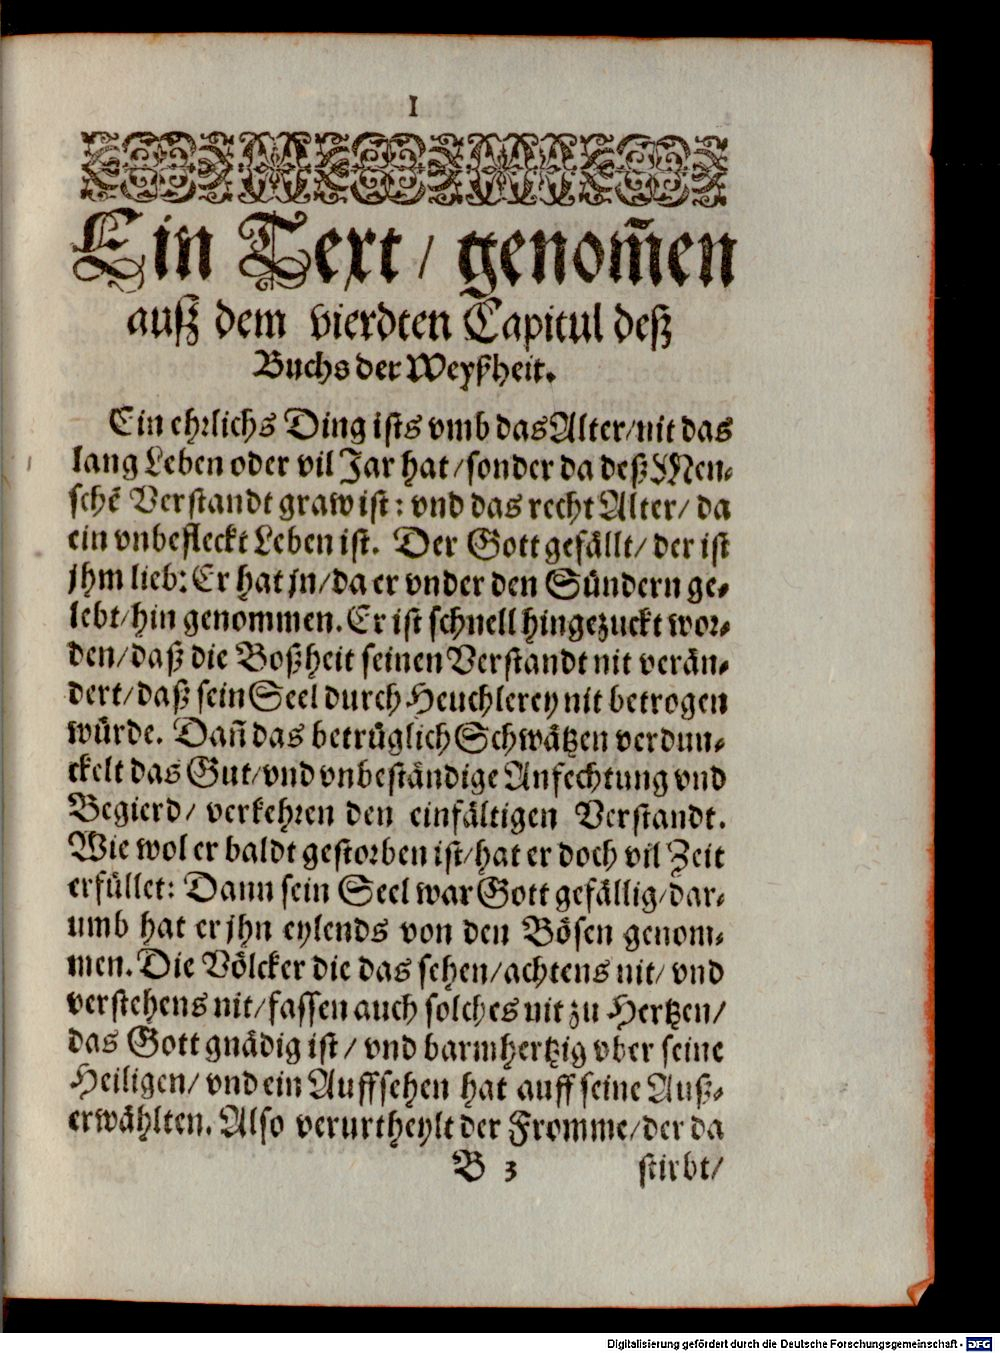 1
Ein Text / genom̃en
auß dem vierdten Capitul deß
Buchs der Weyßheit.
Ein ehrlichs Ding ists vmb das Alter/nit das
lang Leben oder vil Jar hat/sonder da deß Men⸗
schẽ Verstandt graw ist: vnd das recht Alter/ da
ein vnbefleckt Leben ist. Der Gott gefällt/ der ist
jhm lieb: Er hat jn/da er vnder den Sündern ge⸗
lebt/hin genommen. Er ist schnell hingezuckt wor⸗
den/daß die Boßheit seinen Verstandt nit verän⸗
dert/daß sein Seel durch Heuchlerey nit betrogen
würde. Dañ das betrüglich Schwätzen verdun⸗
ckelt das Gut/vnd vnbeständige Anfechtung vnd
Begierd/ verkehren den einfältigen Verstandt.
Wie wol er baldt gestorben ist/hat er doch vil Zeit
erfüllet: Dann sein Seel war Gott gefällig/dar⸗
umb hat er jhn eylends von den Bösen genom⸗
men. Die Völcker die das sehen/achtens nit/ vnd
verstehens nit/fassen auch solches nit zu Hertzen/
das Gott gnädig ist/ vnd barmhertzig vber seine
Heiligen/ vnd ein Auffsehen hat auff seine Auß⸗
erwählten. Also verurtheylt der Fromme/der da
B 3 stirbt/
Digitalisierung gefördert durch die Deutsche Forschungsgemeinschaft - DFG